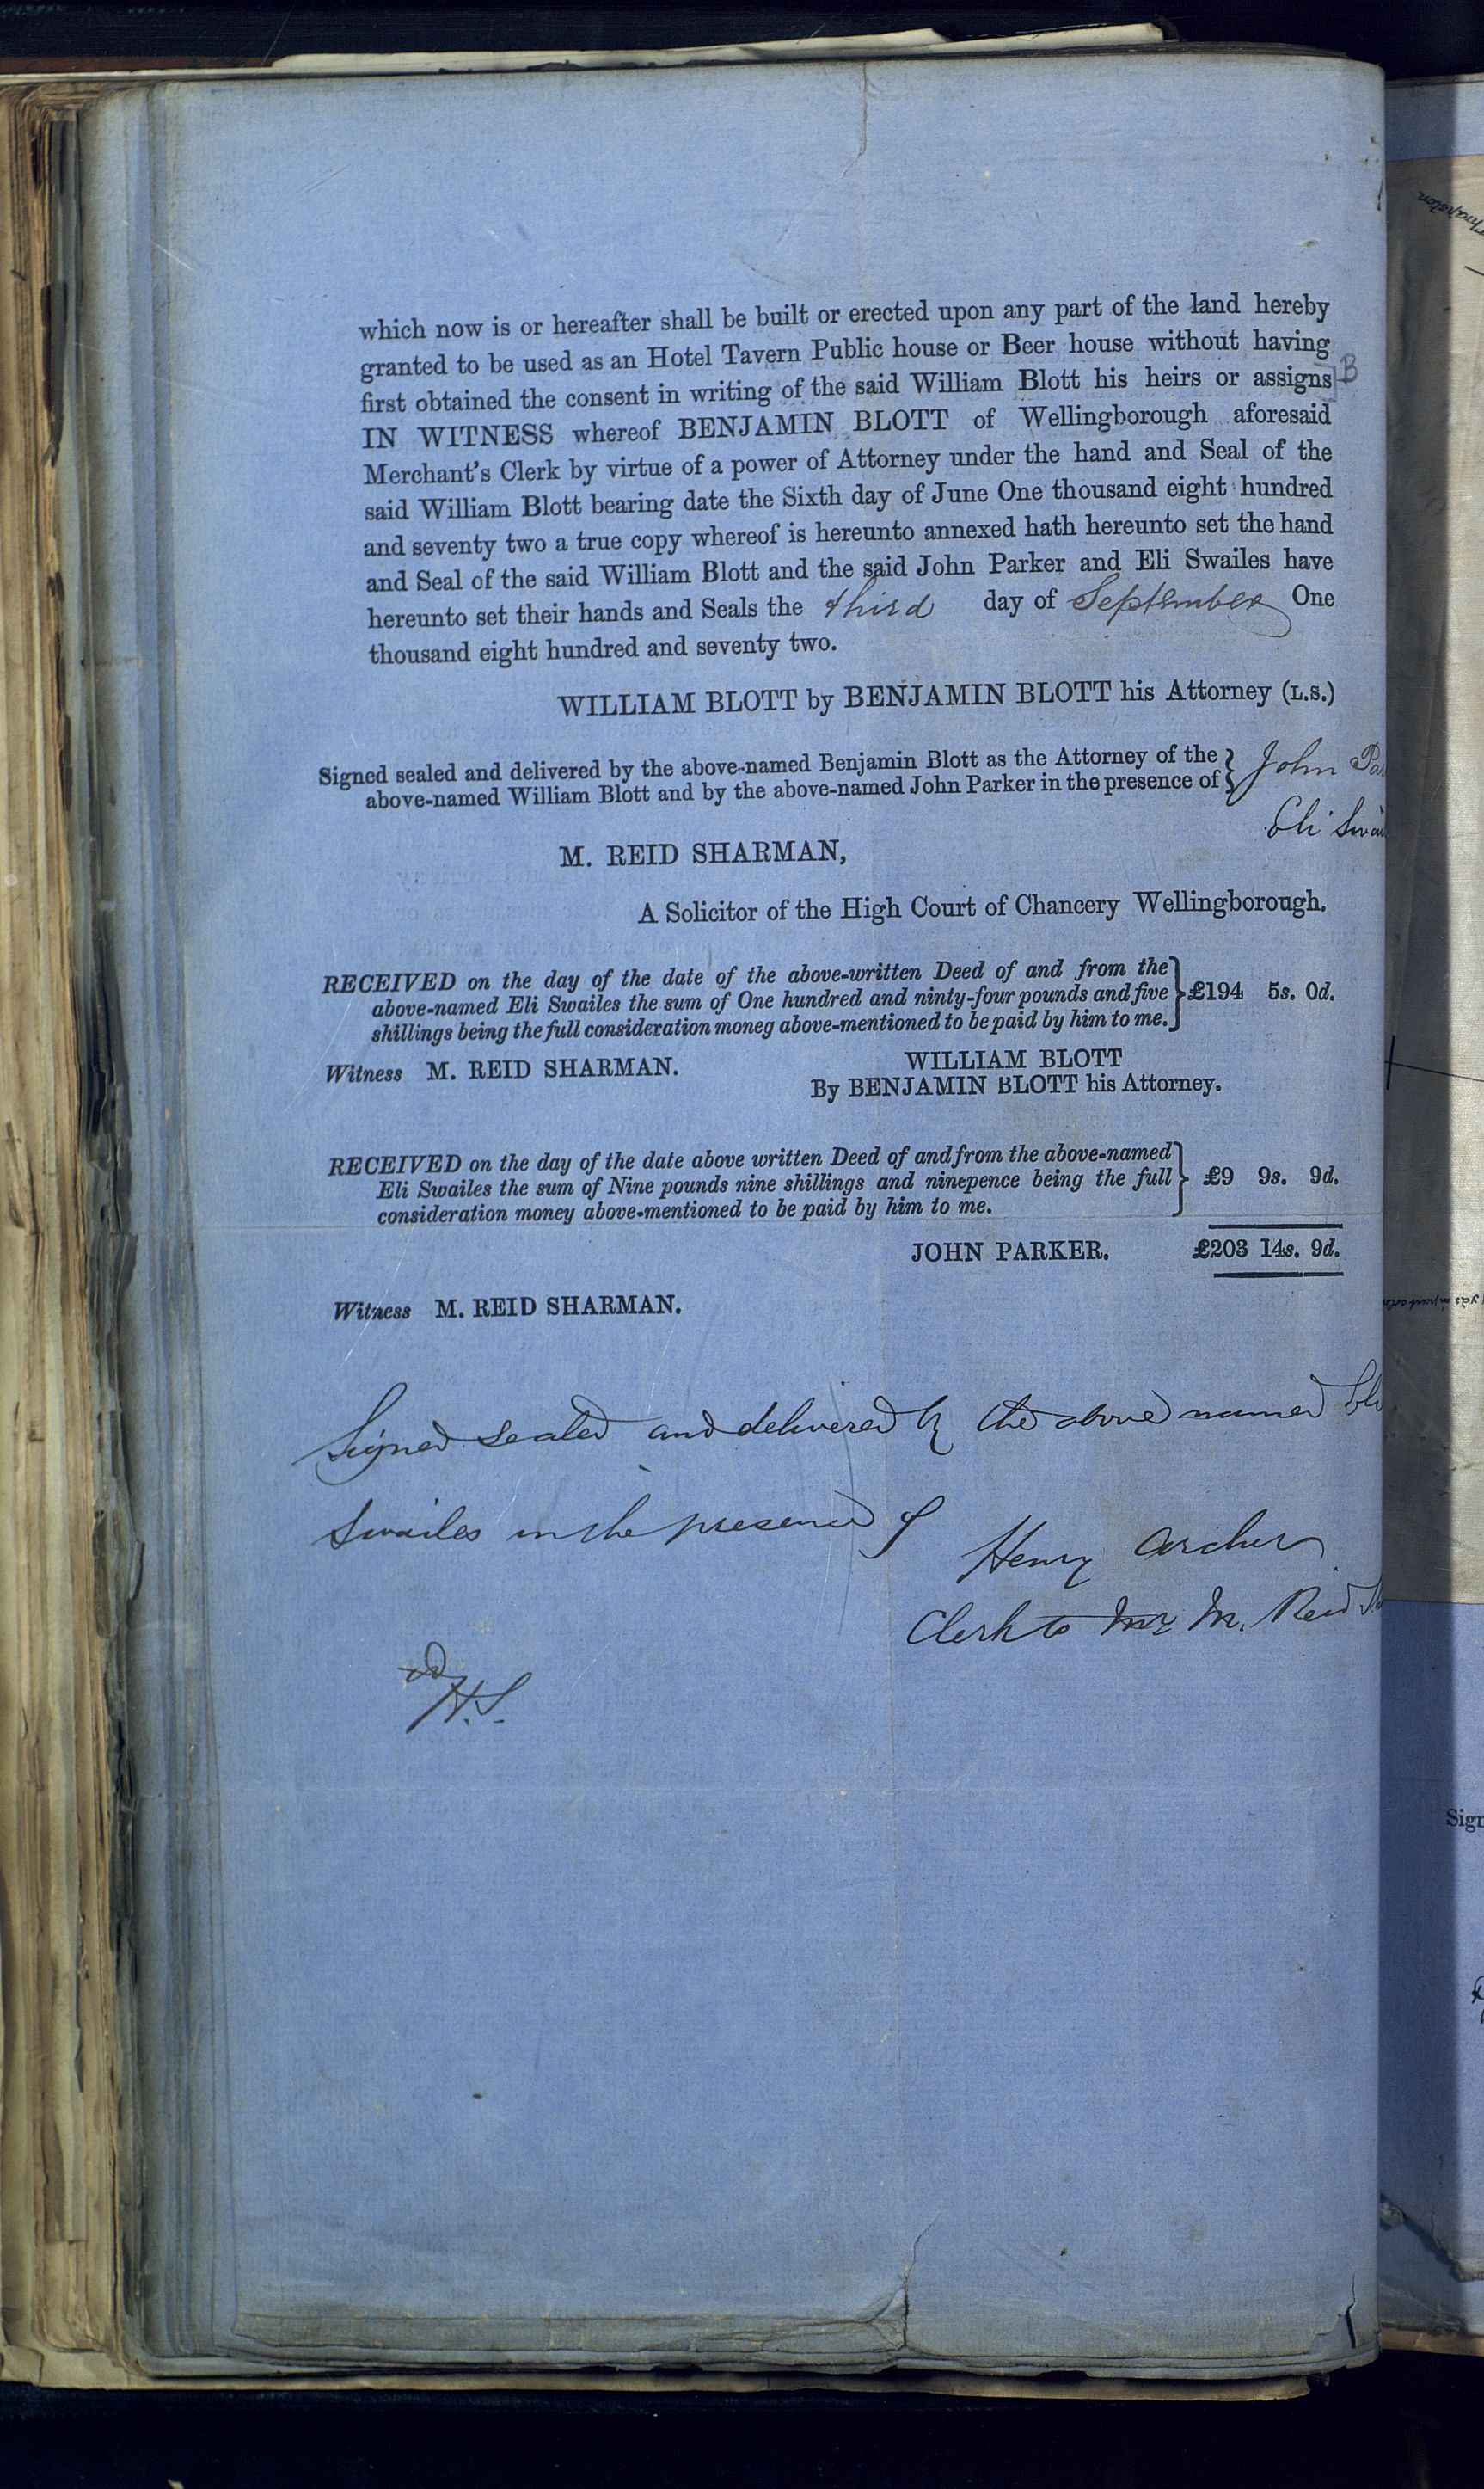 which now is or hereafter shall be built or erected upon any part of the land hereby
granted to be used as an Hotel Tavern Public house or Beer house without having
first obtained the consent in writing of the said William Blott his heirs or assigns] B
IN WITNESS whereof BENJAMIN BLOTT of Wellingborough aforesaid
Merchant's Clerk by virtue of a power of Attorney under the hand and Seal of the
said William Blott bearing date the Sixth day of June One thousand eight hundred
and seventy two a true copy whereof is hereunto annexed hath hereunto set the hand
and Seal of the said William Blott and the said John Parker and Eli Swailes have
hereunto set their hands and Seals the third day of September One
thousand eight hundred and seventy two.
WILLIAM BLOTT by BENJAMIN BLOTT his Attorney (L.S.)
Signed sealed and delivered by the above-named Benjamin Blott as the Attorney of the
above-named William Blott and by the above-named John Parker in the presence of
John Par
Eli Swai
M. REID SHARMAN,
A Solicitor of the High Court of Chancery Wellingborough.
RECEIVED on the day of the date of the above-written Deed of and from the
above-named Eli Swailes the sum of One hundred and ninty-four pounds and five £194 5s. 0d.
shillings being the full consideration moneg above-mentioned to be paid by him to me.
Witness M. REID SHARMAN.
WILLIAM BLOTT
By BENJAMIN BLOTT his Attorney.
RECEIVED on the day of the date above written Deed of and from the above-named
Eli Swailes the sum of Nine pounds nine shillings and ninepence being the full £9 9s. 9d.
consideration money above-mentioned to be paid by him to me.
JOHN PARKER. £203 14s. 9d.
Witness M. REID SHARMAN.
Signed sealed and delivered by the above named Eli
Swailes in the presence of
Henry Archer
Clerk to Mr M. Reid
H.S.
Thrapston
Sign